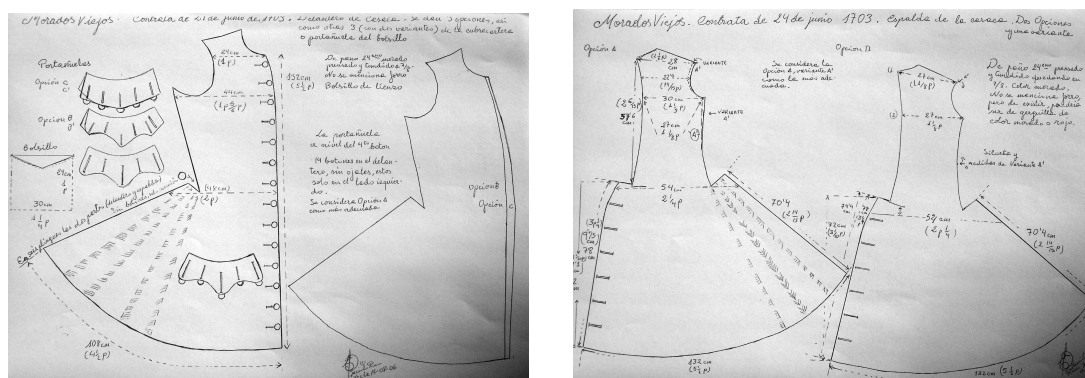 Morados Viejos. Contrata de 21 de junio de 1703. Delantero de Casaca - se dan 3 opciones, así
como otras 3 (con dos variantes) de la cubrecartera
o portañuela del bolsillo
Portañuelas
Opción C
C'
Opción B
B'
Bolsillo
24cm
1
P
30cm
1 1/4 P
24cm
(1P)
44cm
132cm
(5 1/2 P)
De paño 24 eno morado
prensado y tundidos 7/8.
No se menciona forro
Bolsillo de Lienzo
La portañuela
a nivel del 4to botón
14 botones en el delan-
tero, sin ojales, estos
solo en el lado izquier-
do.
Se considera Opción B
como más adecuada
Opción B
Opción C
(48cm)
(2P)
108cm
(4 1/2 P)
Morados Viejos. Contrata de 24 de junio 1703. Espalda de la casaca. Dos Opciones
y una variante
Opción A
28
cm
VARIANTE
A'
30 cm
(1 1/4 P)
27cm
1 1/8 P
VARIANTE
A'
57'6
cm
Se considera la
Opción A, variante A'
como la más ade
cuada.
54 cm
2 1/4 P
70'4
78
132 cm
(5 1/2 P)
Opción B
27 cm
(1 1/8 P)
27 cm
1 1/8 P
De paño 24 eno prensado
y tundido quedando en
7/8. Color morado.
No se menciona forro,
pero de existir, podría
ser de jerguilla de
color morado o rojo.
Situada y
medidas de Variante A'
54 cm
(2P 1/4)
72cm
70'4 cm
(2 14/15 P)
132 cm (5 1/2 P)